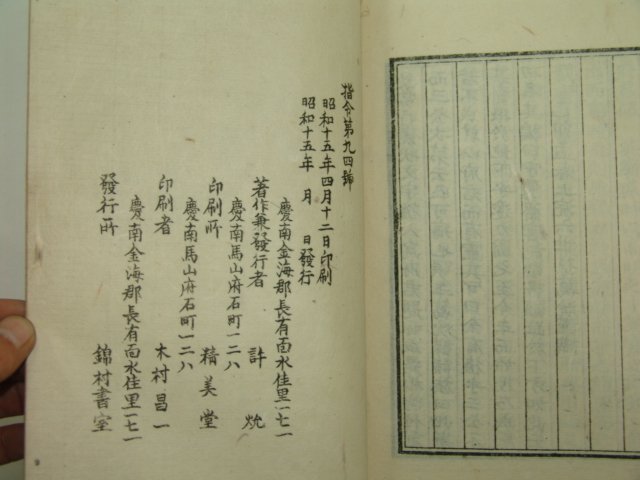 指令第九四號
昭和十五年四月十二日印刷
昭和十五年 月 日發行
慶南金海郡長有面水佳里一七一
著作兼發行者 許
慶南馬山府石町一二八
印刷所 精美堂
慶南馬山府石町一二八
印刷者 木村昌一
慶南金海郡長有面水佳里一七一
發行所 錦村書室